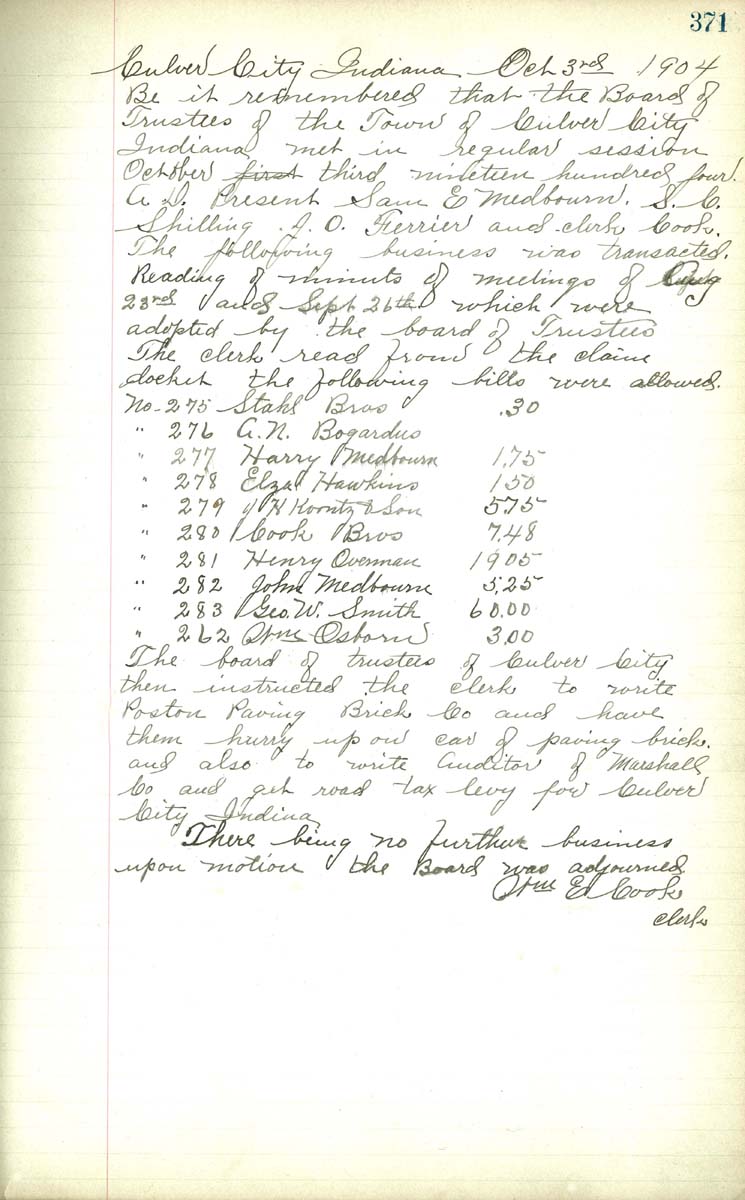 371
Culver City Indiana Oct 3rd 1904
Be it remembered that the Board of
Trustees of the Town of Culver City
Indiana met in regular session
October first third nineteen hundred four.
A.D. Present Sam E Medbourn. S. C.
Shilling. J. O. Ferrier and clerk Cook.
The following business was transacted.
Reading of minuts of meetings of Aug
23rd and Sept 26th which were
adopted by the board of Trustees
The clerk read from the claim
docket the following bills were allowed.
No. 275 Stahl Bros .30
" 276 A. N. Bogardus
" 277 Harry Medbourn 1.75
" 278 Elza Hawkins 150
" 279 J H Koontz & Son 5.75
" 280 Cook Bros 7.48
" 281 Henry Overman 1905
" 282 John Medbourn 5.25
" 283 Geo. W. Smith 60.00
" 262 Wm Osborn 3.00
The board of trustees of Culver City
then instructed the clerk to write
Poston Paving Brick Co and have
them hurry up on car of paving brick.
and also to write Auditor of Marshall
Co and get road tax levy for Culver
City Indina
There being no further business
upon motion the Board was adjourned
Wm E Cook
clerk